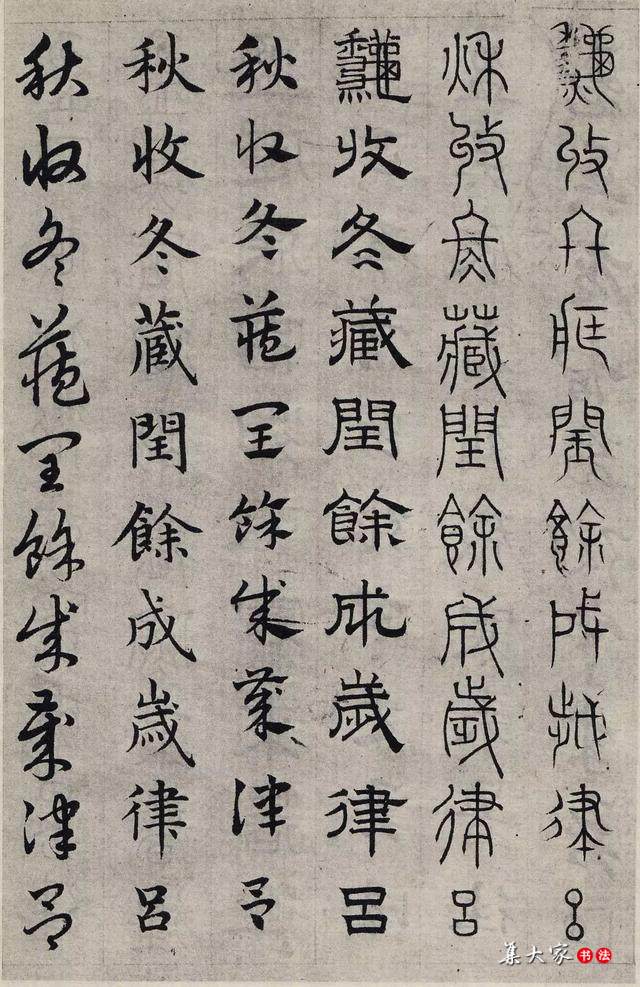 秋收冬藏閏餘成歲律呂
秋收冬藏閏餘成歲律呂
秋收冬藏閏餘成歲律呂
秋收冬藏閏餘成歲律呂
秋收冬藏閏餘成歲律呂
秋收冬藏閏餘成歲律呂
集大家书法